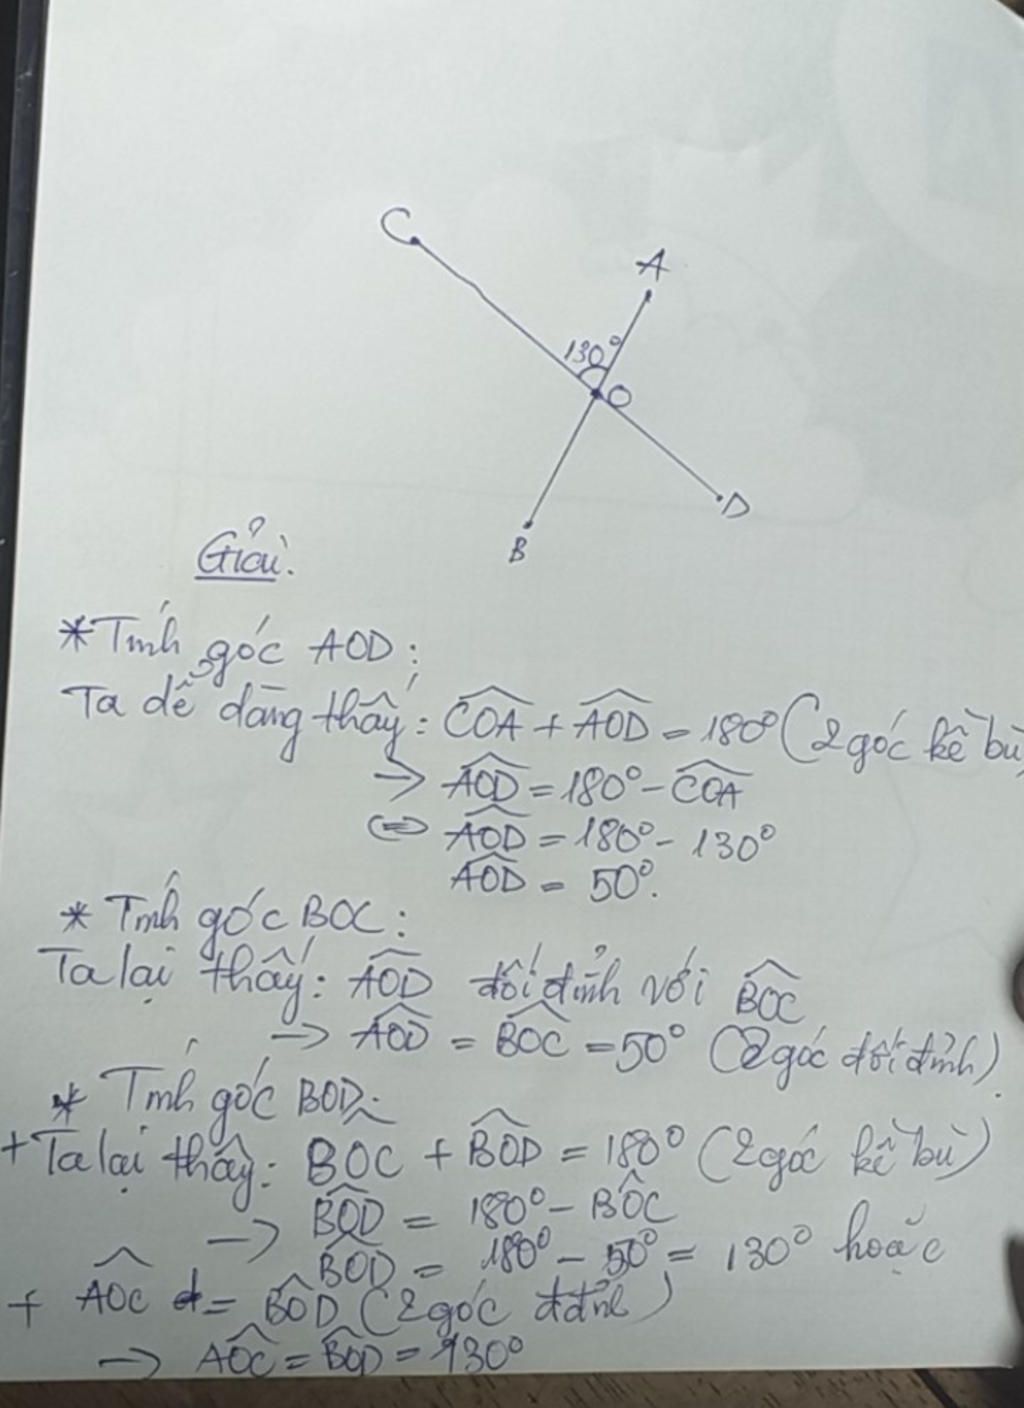 C
A
130°
O
D
B
Giải:
* Tính góc AOD:
Ta dễ dàng thấy: COA + AOD = 180° (2 góc kề bù)
→ AOD = 180° - COA
⇔ AOD = 180° - 130°
AOD = 50°.
* Tính góc BOC:
Ta lại thấy: AOD đối đỉnh với BOC
→ AOD = BOC = 50° (2 góc đối đỉnh).
* Tính góc BOD:
+ Ta lại thấy: BOC + BOD = 180° (2 góc kề bù)
→ BOD = 180° - BOC
BOD = 180° - 50° = 130° hoặc
+ AOC = BOD (2 góc đđỉnh)
→ AOC = BOD = 130°